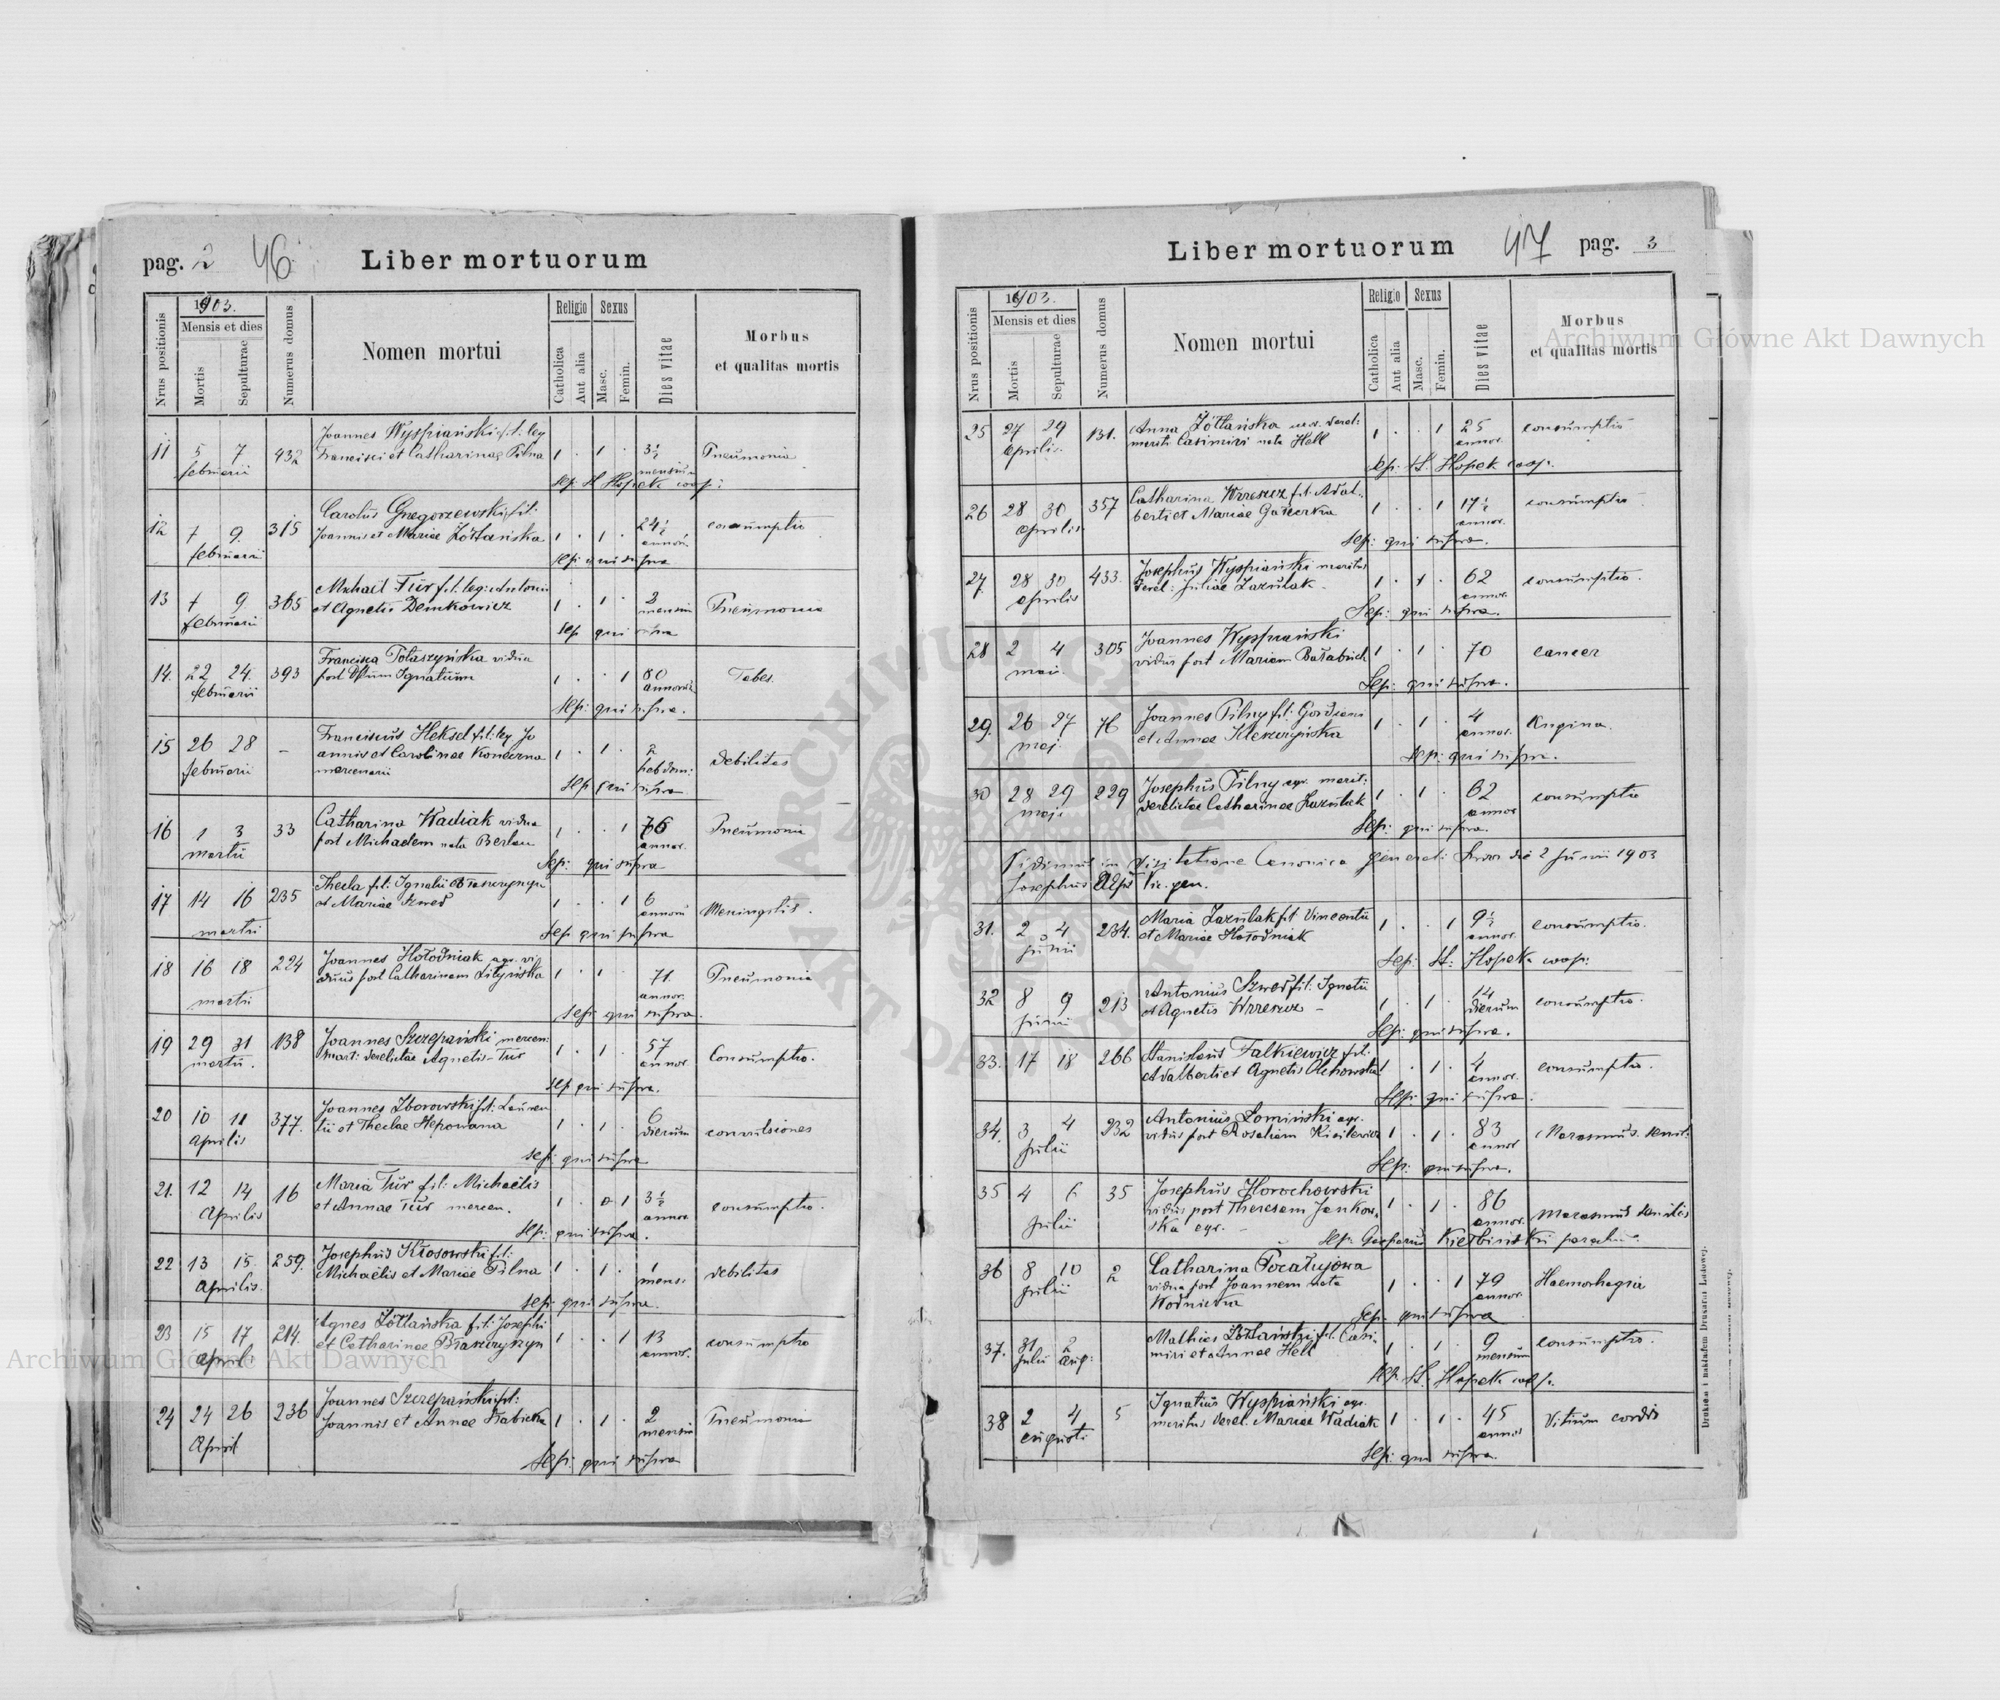 pag. 2 46 Liber mortuorum
1903.
Nrus positionis
Mensis et dies
Mortis
Sepulturae
Numerus domus
Nomen mortui
Religio
Catholica
Aut alia
Sexus
Masc.
Femin.
Dies vitae
Morbus
et qualitas mortis
11 5 7 februarii 432 Joannes Wyspiański fil: leg
Francisci et Catharinae Pilna 1 . 1 . 3½ mensium Pneumonia
Sep: St Hopek coop:
12 7 9. februarii 315 Carolus Gregorzewski fil:
Joannis et Mariae Żółtańska 1 . 1 . 24½ annor. consumptio
Sep: qui supra
13 7 9 februarii 365 Michaël Tur fil. leg: Antonii
et Agnetis Demkowicz 1 . 1 . 2 mensium Pneumonia
Sep qui supra
14. 22 24. februarii 393 Francisca Potaszyńska vidua
post Ignatium 1 . . 1 80 annorum Tabes.
Sep: qui supra.
15 26 28 februarii - Franciscus Heksel fil: leg. Jo
annis et Carolinae Konderna
mercenarii 1 . 1 . 2 hebdom: debilitas
Sep qui supra
16 1 3 martii 33 Catharina Wadiak vidua
post Michaelem nata Berlau 1 . . 1 76 annor. Pneumonia
Sep: qui supra
17 14 16 martii 235 Thecla fil: Ignatii Błaszczyszyn
et Mariae Szwed 1 . . 1 6 annor Meningitis.
Sep qui supra
18 16 18 martii 224 Joannes Hołodniak agr. vi
duus post Catharinam Lityńska 1 . 1 . 71. annor. Pneumonia
Sep qui supra.
19 29 31 martii. 138 Joannes Szczepański mercen:
marit: derelictae Agnetis Tur 1 . 1 . 57 annor. Consumptio.
Sep qui supra.
20 10 11 Aprilis 377. Joannes Zborowski fil: Lauren
tii et Theclae Stepowana 1 . 1 . 6 dierum convulsiones
Sep: qui supra
21. 12 14 Aprilis 16 Maria Tur fil: Michaëlis
et Annae Tur mercen. 1 . 1 3½ annor consumptio.
Sep: qui supra.
22 13 15. Aprilis. 259. Josephus Kłosowski fil:
Michaëlis et Mariae Pilna 1 . 1 . 1 mens: debilitas
Sep: qui supra.
23 15 17 Aprilis 214. Agnes Żółtańska fil: Josephi
et Catharinae Błaszczyszyn 1 . . 1 13 annor. consumptio
24 24 26 April 236 Joannes Szczepański fil:
Joannis et Annae Babicka 1 . 1 . 2 mensium Pneumonia
Sep: qui supra
Liber mortuorum 47 pag. 3
1903.
Nrus positionis
Mensis et dies
Mortis
Sepulturae
Numerus domus
Nomen mortui
Religio
Catholica
Aut alia
Sexus
Masc.
Femin.
Dies vitae
Morbus
et qualitas mortis
25 27 29 Aprilis 131. Anna Żółtańska uxor derel:
mariti Casimiri nata Hell 1 . . 1 25 annor. consumptio
Sep: St. Hopek coop:
26 28 30 Aprilis 357 Catharina Wrzeszcz fil: Adal-
berti et Mariae 1 . . 1 17½ annor. consumptio
Sep: qui supra.
27. 28 30 Aprilis 433. Josephus Wyspiański maritus
derel: Juliae Zazulak. 1 . 1 . 62 annor. consumptio.
Sep: qui supra.
28 2 4 maii 305 Joannes Wyspiański
viduus post Mariam Bałabuch 1 . 1 . 70 cancer
Sep: qui supra.
29. 26 27 maj 76 Joannes Pilny fil: Gordiani
et Annae Kleszczyńska 1 . 1 . 4 annor. Angina.
Sep: qui supra.
30 28 29 maji 229 Josephus Pilny agr. marit:
derelictae Catharinae Zazulak 1 . 1 . 62 annor consumptio
Sep: qui supra.
Vidimus in Visitatione Canonica generali die 2 Junii 1903
Josephus Vic. gen.
31. 2 4 Junii 234. Maria Zazulak fil: Vincentii
et Mariae Hołodniak 1 . . 1 9½ annor. consumptio.
Sep: St: Hopek coop:
32 8 9 Junii 213 Antonius Szwed fil: Ignatii
et Agnetis Wrzeszcz - 1 . 1 . 14 dierum consumptio.
Sep: qui supra.
33. 17 18 266 Stanislaus Falkiewicz fil:
Adalberti et Agnetis Olchowska 1 . 1 . 4 annor. consumptio.
Sep: qui supra.
34. 3 4 Julii 232 Antonius Łomiński agr.
viduus post Rosaliam Kisilewicz 1 . 1 . 83 annor Marasmus senil:
Sep: qui supra.
35 4 6 Julii 35 Josephus Horochowski
viduus post Theresam Jankow-
ska agr. - 1 . 1 . 86 annor. Marasmus senilis
Sep: Gasparus Kiełbiński paroch:
36 8 10 Julii 2 Catharina Pocałujowa
vidua post Joannem nata
Wodnicka 1 . . 1 79 annor. Haemorhagia
Sep: qui supra
37. 31 Julii 2 Aug: Mathias Żółtański fil: Casi-
miri et Annae Hell 1 . 1 . 9 mensium consumptio.
Sep. St. Hopek coop:
38 2 4 augusti 5 Ignatius Wyspiański agr.
maritus derel. Mariae Wadiak 1 . 1 . 45 annor Vitium cordis
Sep: qui supra.
Drukiem i nakładem Drukarni Ludowej.
Archiwum Główne Akt Dawnych
Archiwum Główne Akt Dawnych